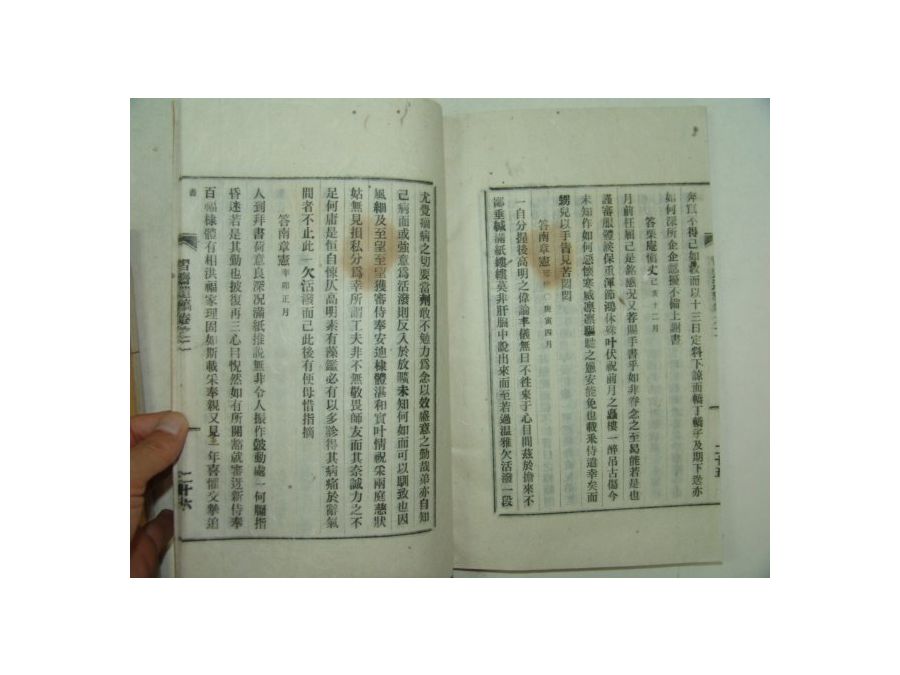 奔官不得已如敎而以十三日定料下諒而轎丁轎子及期下送亦
如何深所企企認擾不備上謝書
答栗庵愼丈 己亥十二月
月前枉屈已是銘感況又荐賜手書乎如非眷念之之至曷能若是也
謹審服體緩保重渾節鴻休殊叶伏祝前月之矗樓一醉吊古傷今
未知作如何懷寒威凜凜驅 之 安能免也載來侍道幸矣而
甥兒以手 見苦悶悶
答南章憲 庚寅四月
一自分握後高明之偉論丰儀無日不徃來于心目間茲於擔來不
鄙垂緘滿紙縷縷莫非肝膈中說出來而至若過溫雅欠活潑一段
尤覺痛病之切要當 州敢不勉力爲念以效盛意之勤哉弟亦自知
己病而或強意爲活潑則反入於放曠未知何如而可以馴致也因
風細及至望至望獲審侍奉安迪棣體湛和實叶情祝采兩庭慈狀
姑無見損私分爲幸所謂工夫非不無敬畏師友而其奈誠力之不
足何庸是恒自悚仄高明素有藻鑑必有以多診得其病痛於辭氣
間者不止此一欠活潑而已此後有便毋惜指摘
答南章憲 辛卯正月
人到拜書荷意良深況滿紙推說無非令人振作皷動處一何膈指
昏迷若是其勤也披復再三心目怳然如有所開豁就審迓新侍奉
百福棣體有相洪福家理固如斯載采奉親又見 年喜懼交摯追
書
卷之二
二十六